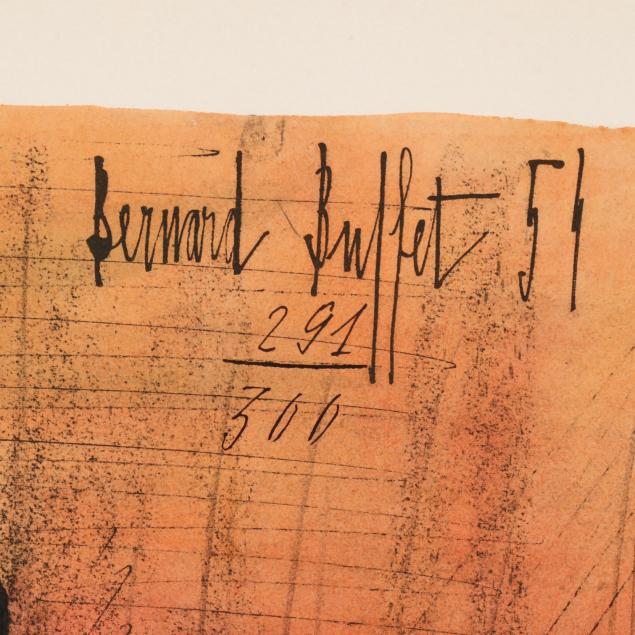 Bernard Buffet 51
291
300